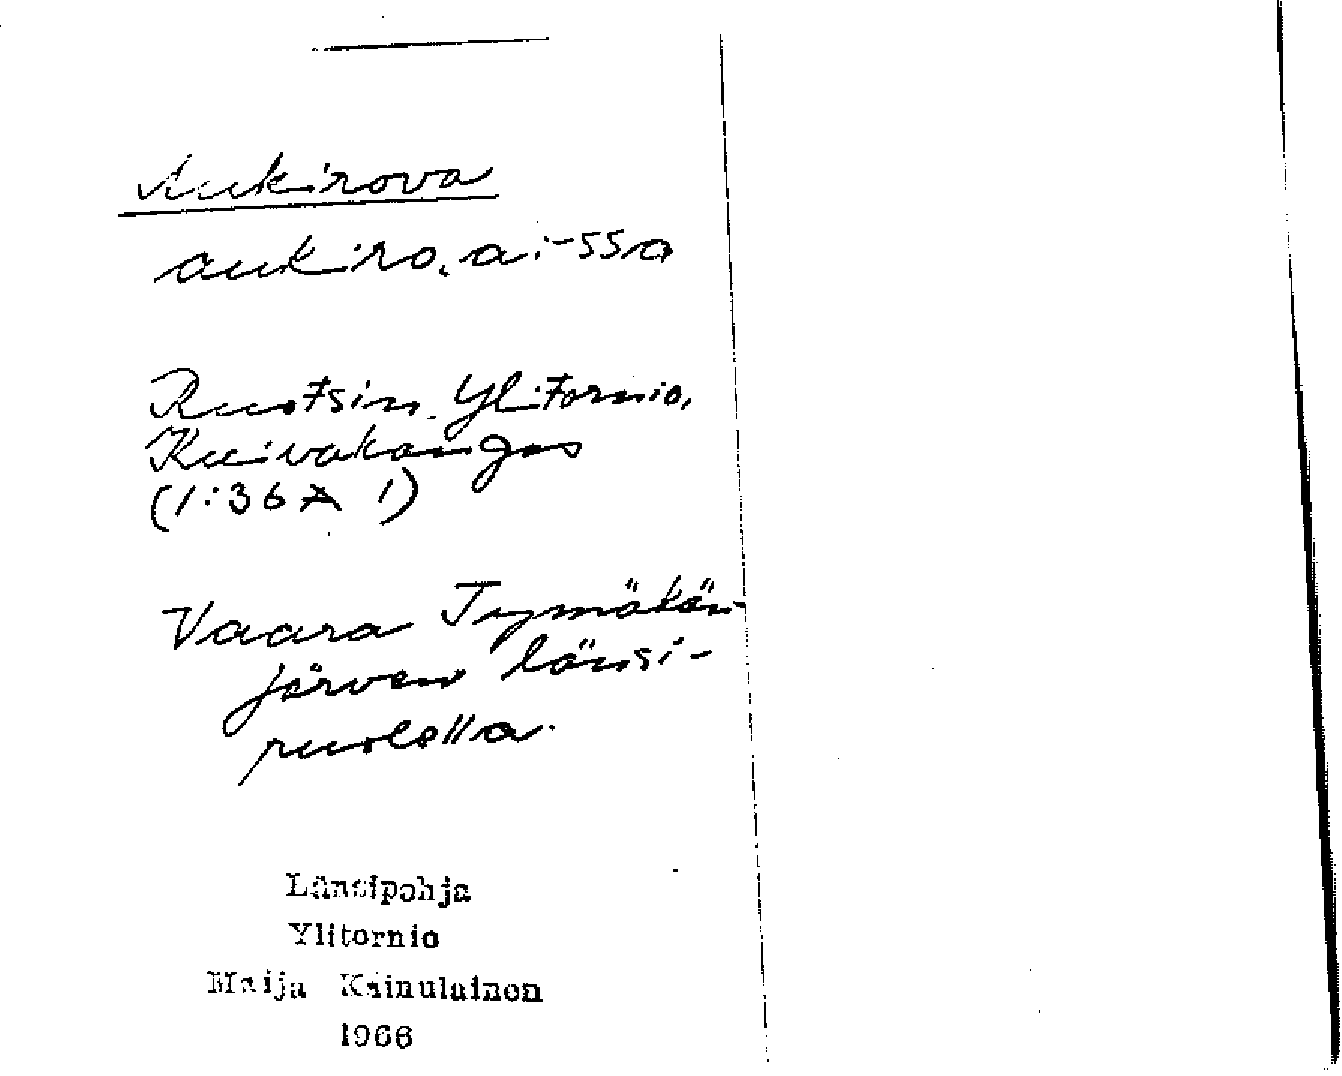 Aukirova
aukiro͔ a: -ssa
Ruotsin Ylitornio,
Kuivakangas
(1:36 A 1)
Vaara Tymäkän-
järven länsi-
puolella.
Länsipohja
Ylitornio
Maija Kainulainen
1966